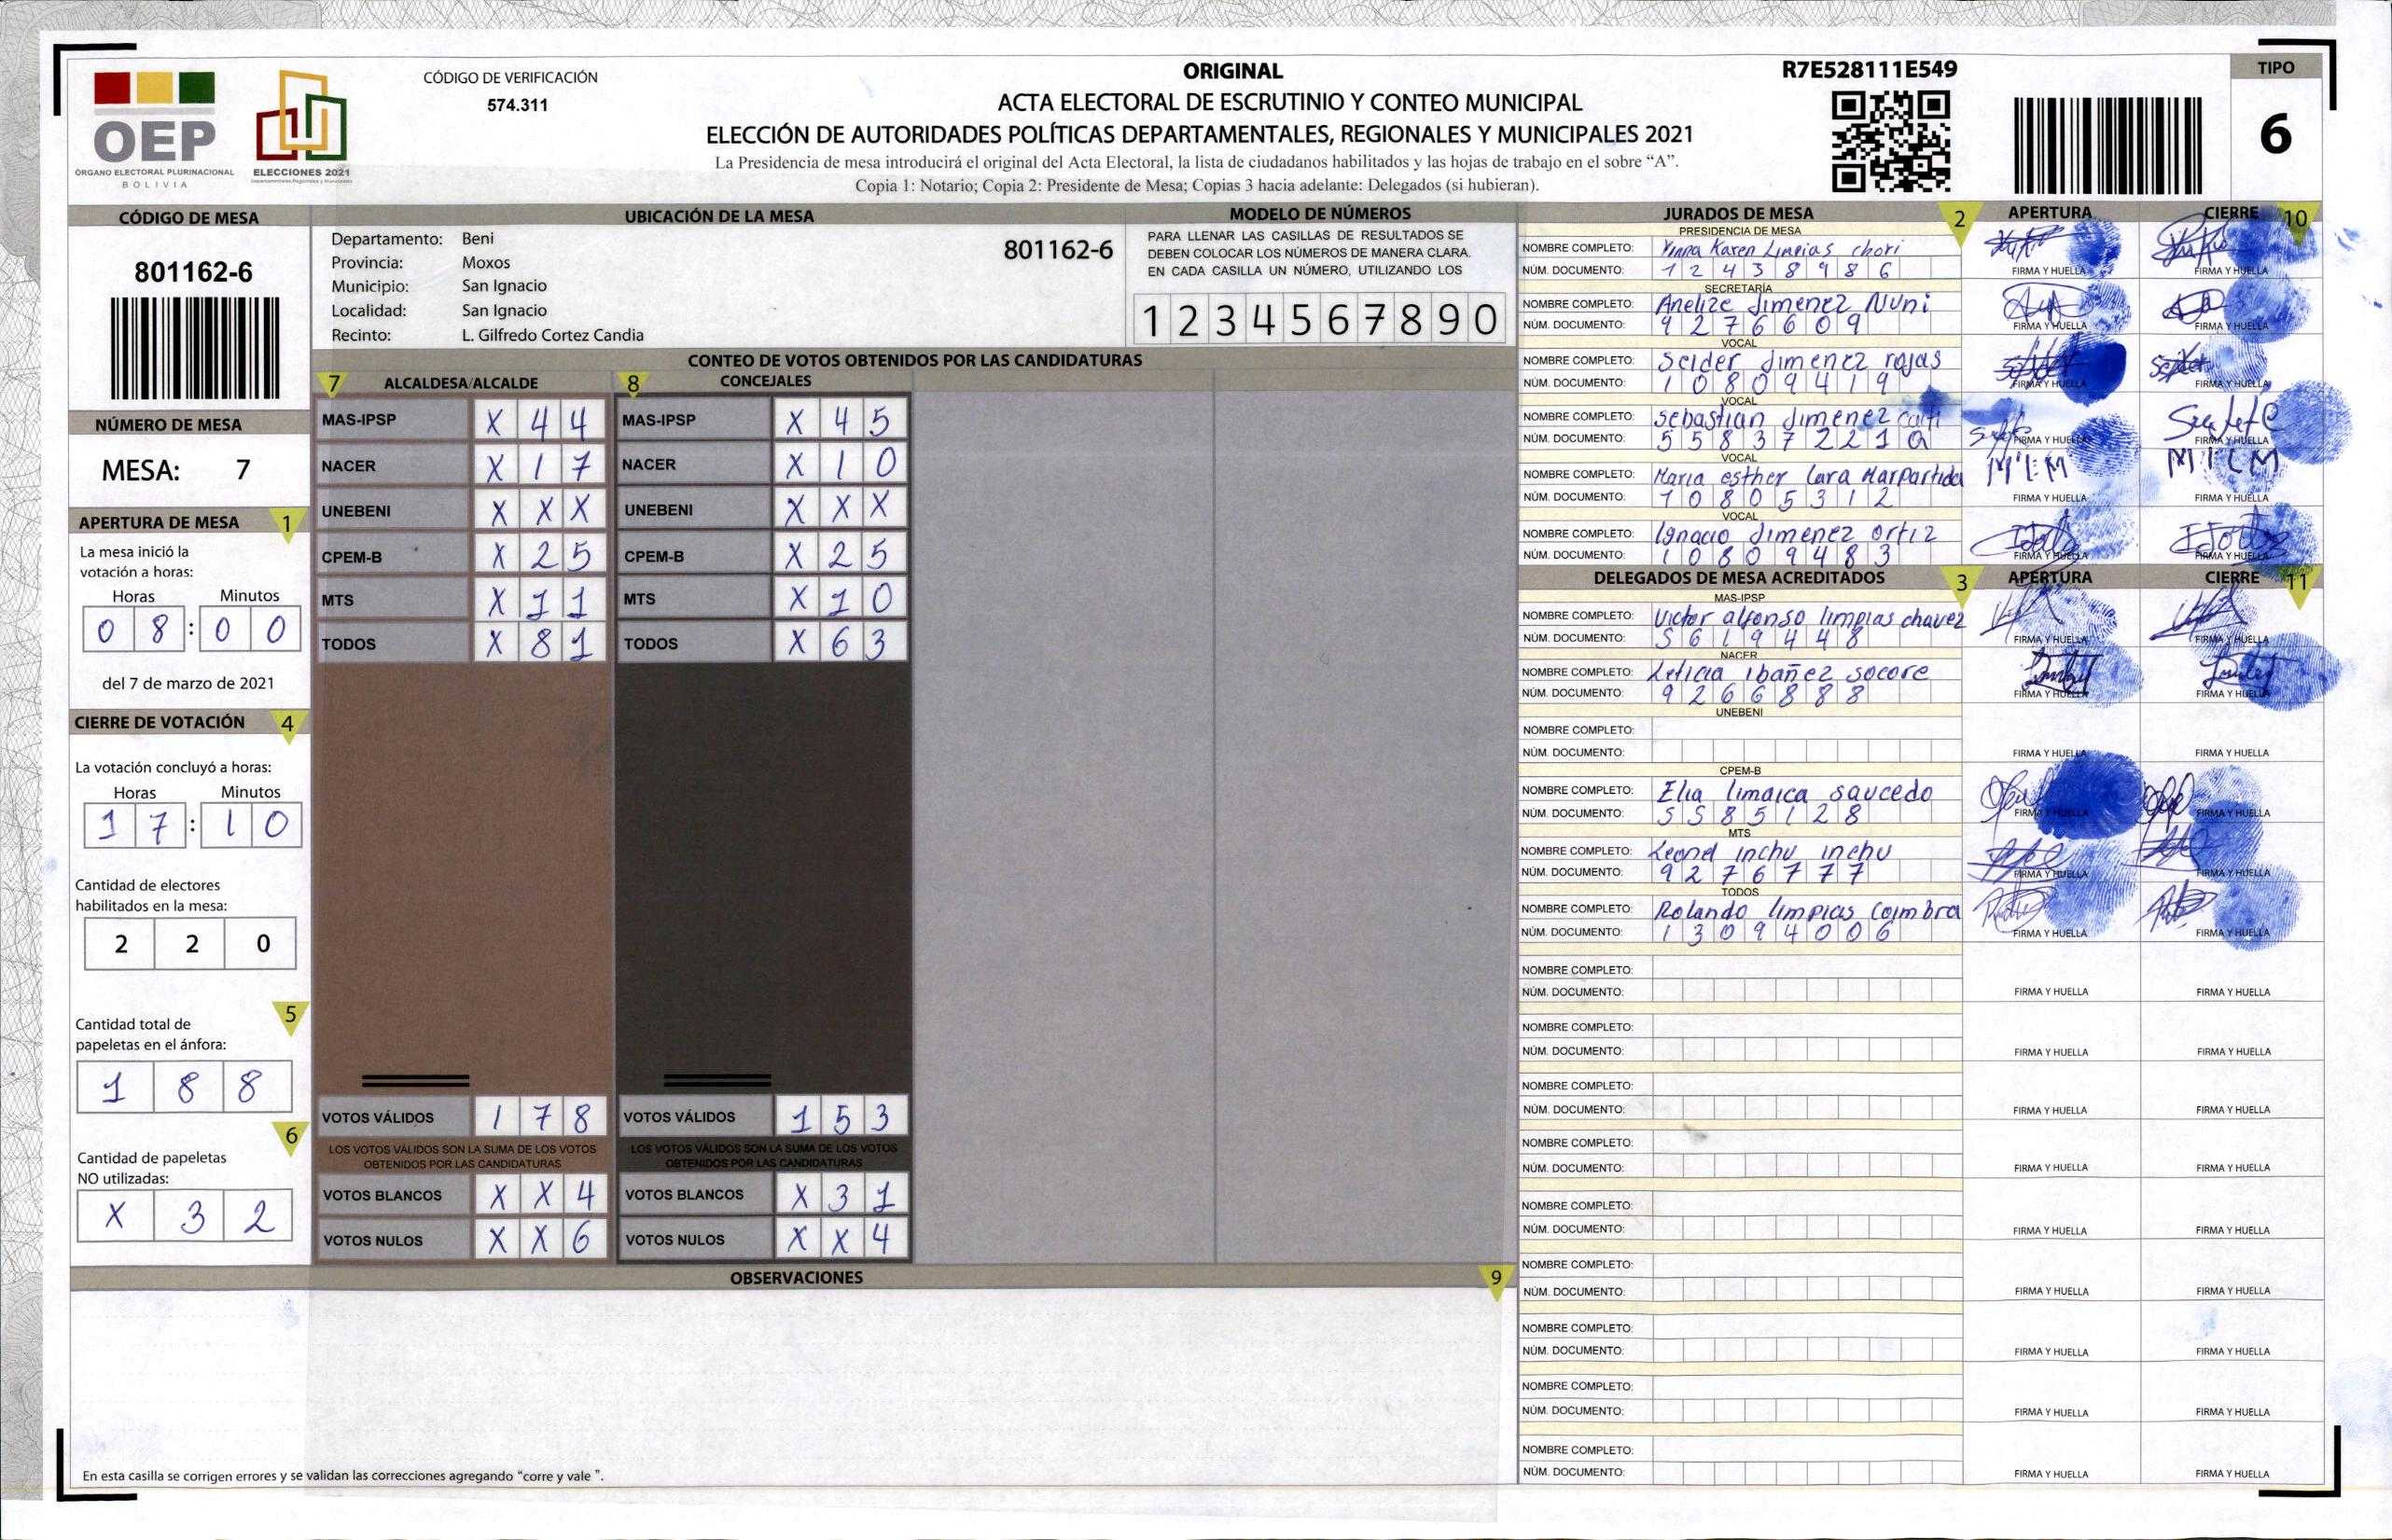 ORIGINAL
ACTA ELECTORAL DE ESCRUTINIO Y CONTEO MUNICIPAL
ELECCIÓN DE AUTORIDADES POLÍTICAS DEPARTAMENTALES, REGIONALES Y MUNICIPALES 2021
La Presidencia de mesa introducirá el original del Acta Electoral, la lista de ciudadanos habilitados y las hojas de trabajo en el sobre “A”.
Copia 1: Notario; Copia 2: Presidente de Mesa; Copias 3 hacia adelante: Delegados (si hubieran).
OEP
ÓRGANO ELECTORAL PLURINACIONAL
BOLIVIA
ELECCIONES 2021
CÓDIGO DE VERIFICACIÓN
574.311
R7E528111E549
TIPO
6
CÓDIGO DE MESA
801162-6
NÚMERO DE MESA
MESA: 7
APERTURA DE MESA 1
La mesa inició la
votación a horas:
Horas Minutos
0 8 : 0 0
del 7 de marzo de 2021
CIERRE DE VOTACIÓN 4
La votación concluyó a horas:
Horas Minutos
1 7 : 1 0
Cantidad de electores
habilitados en la mesa:
2 2 0
5
Cantidad total de
papeletas en el ánfora:
1 8 8
6
Cantidad de papeletas
NO utilizadas:
X 3 2
UBICACIÓN DE LA MESA
Departamento: Beni
801162-6
Provincia: Moxos
Municipio: San Ignacio
Localidad: San Ignacio
Recinto: L. Gilfredo Cortez Candia
MODELO DE NÚMEROS
PARA LLENAR LAS CASILLAS DE RESULTADOS SE
DEBEN COLOCAR LOS NÚMEROS DE MANERA CLARA.
EN CADA CASILLA UN NÚMERO, UTILIZANDO LOS
1 2 3 4 5 6 7 8 9 0
CONTEO DE VOTOS OBTENIDOS POR LAS CANDIDATURAS
7 ALCALDESA/ALCALDE
MAS-IPSP X 4 4
NACER X 1 7
UNEBENI X X X
CPEM-B X 2 5
MTS X 1 1
TODOS X 8 1
VOTOS VÁLIDOS 1 7 8
LOS VOTOS VÁLIDOS SON LA SUMA DE LOS VOTOS
OBTENIDOS POR LAS CANDIDATURAS
VOTOS BLANCOS X X 4
VOTOS NULOS X X 6
8 CONCEJALES
MAS-IPSP X 4 5
NACER X 1 0
UNEBENI X X X
CPEM-B X 2 5
MTS X 1 0
TODOS X 6 3
VOTOS VÁLIDOS 1 5 3
LOS VOTOS VÁLIDOS SON LA SUMA DE LOS VOTOS
OBTENIDOS POR LAS CANDIDATURAS
VOTOS BLANCOS X 3 1
VOTOS NULOS X X 4
OBSERVACIONES 9
En esta casilla se corrigen errores y se validan las correcciones agregando “corre y vale ”.
JURADOS DE MESA 2 APERTURA CIERRE 10
PRESIDENCIA DE MESA
NOMBRE COMPLETO: Karen Limpias chori
NÚM. DOCUMENTO: 1 2 4 3 8 9 8 6 FIRMA Y HUELLA FIRMA Y HUELLA
SECRETARÍA
NOMBRE COMPLETO: Anelize Jimenez Nuni
NÚM. DOCUMENTO: 9 2 7 6 6 0 9 FIRMA Y HUELLA FIRMA Y HUELLA
VOCAL
NOMBRE COMPLETO: Seider Jimenez rojas
NÚM. DOCUMENTO: 1 0 8 0 9 4 1 9 FIRMA Y HUELLA FIRMA Y HUELLA
VOCAL
NOMBRE COMPLETO: Sebastian Jimenez
NÚM. DOCUMENTO: 5 5 8 3 7 2 2 1 Q FIRMA Y HUELLA FIRMA Y HUELLA
VOCAL
NOMBRE COMPLETO: Maria esther Lara Marpartida
NÚM. DOCUMENTO: 1 0 8 0 5 3 1 2 FIRMA Y HUELLA FIRMA Y HUELLA
VOCAL
NOMBRE COMPLETO: Ignacio Jimenez ortiz
NÚM. DOCUMENTO: 1 0 8 0 9 4 8 3 FIRMA Y HUELLA FIRMA Y HUELLA
DELEGADOS DE MESA ACREDITADOS 3 APERTURA CIERRE 11
MAS-IPSP
NOMBRE COMPLETO: Victor alfonso limpias chavez
NÚM. DOCUMENTO: 5 6 1 9 4 4 8 FIRMA Y HUELLA FIRMA Y HUELLA
NACER
NOMBRE COMPLETO: Leticia Ibañez socore
NÚM. DOCUMENTO: 9 2 6 6 8 8 8 FIRMA Y HUELLA FIRMA Y HUELLA
UNEBENI
NOMBRE COMPLETO:
NÚM. DOCUMENTO: FIRMA Y HUELLA FIRMA Y HUELLA
CPEM-B
NOMBRE COMPLETO: Elia limaica saucedo
NÚM. DOCUMENTO: 5 5 8 5 1 2 8 FIRMA Y HUELLA FIRMA Y HUELLA
MTS
NOMBRE COMPLETO: Leonel inchu inchu
NÚM. DOCUMENTO: 9 2 7 6 7 7 7 FIRMA Y HUELLA FIRMA Y HUELLA
TODOS
NOMBRE COMPLETO: Rolando limpias Coimbra
NÚM. DOCUMENTO: 1 3 0 9 4 0 0 6 FIRMA Y HUELLA FIRMA Y HUELLA
NOMBRE COMPLETO:
NÚM. DOCUMENTO: FIRMA Y HUELLA FIRMA Y HUELLA
NOMBRE COMPLETO:
NÚM. DOCUMENTO: FIRMA Y HUELLA FIRMA Y HUELLA
NOMBRE COMPLETO:
NÚM. DOCUMENTO: FIRMA Y HUELLA FIRMA Y HUELLA
NOMBRE COMPLETO:
NÚM. DOCUMENTO: FIRMA Y HUELLA FIRMA Y HUELLA
NOMBRE COMPLETO:
NÚM. DOCUMENTO: FIRMA Y HUELLA FIRMA Y HUELLA
NOMBRE COMPLETO:
NÚM. DOCUMENTO: FIRMA Y HUELLA FIRMA Y HUELLA
NOMBRE COMPLETO:
NÚM. DOCUMENTO: FIRMA Y HUELLA FIRMA Y HUELLA
NOMBRE COMPLETO:
NÚM. DOCUMENTO: FIRMA Y HUELLA FIRMA Y HUELLA
NOMBRE COMPLETO:
NÚM. DOCUMENTO: FIRMA Y HUELLA FIRMA Y HUELLA